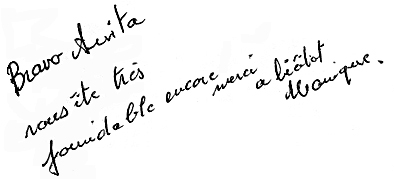 Bravo Anita
vous ête très
formidable encore merci a biêtôt
Monique.